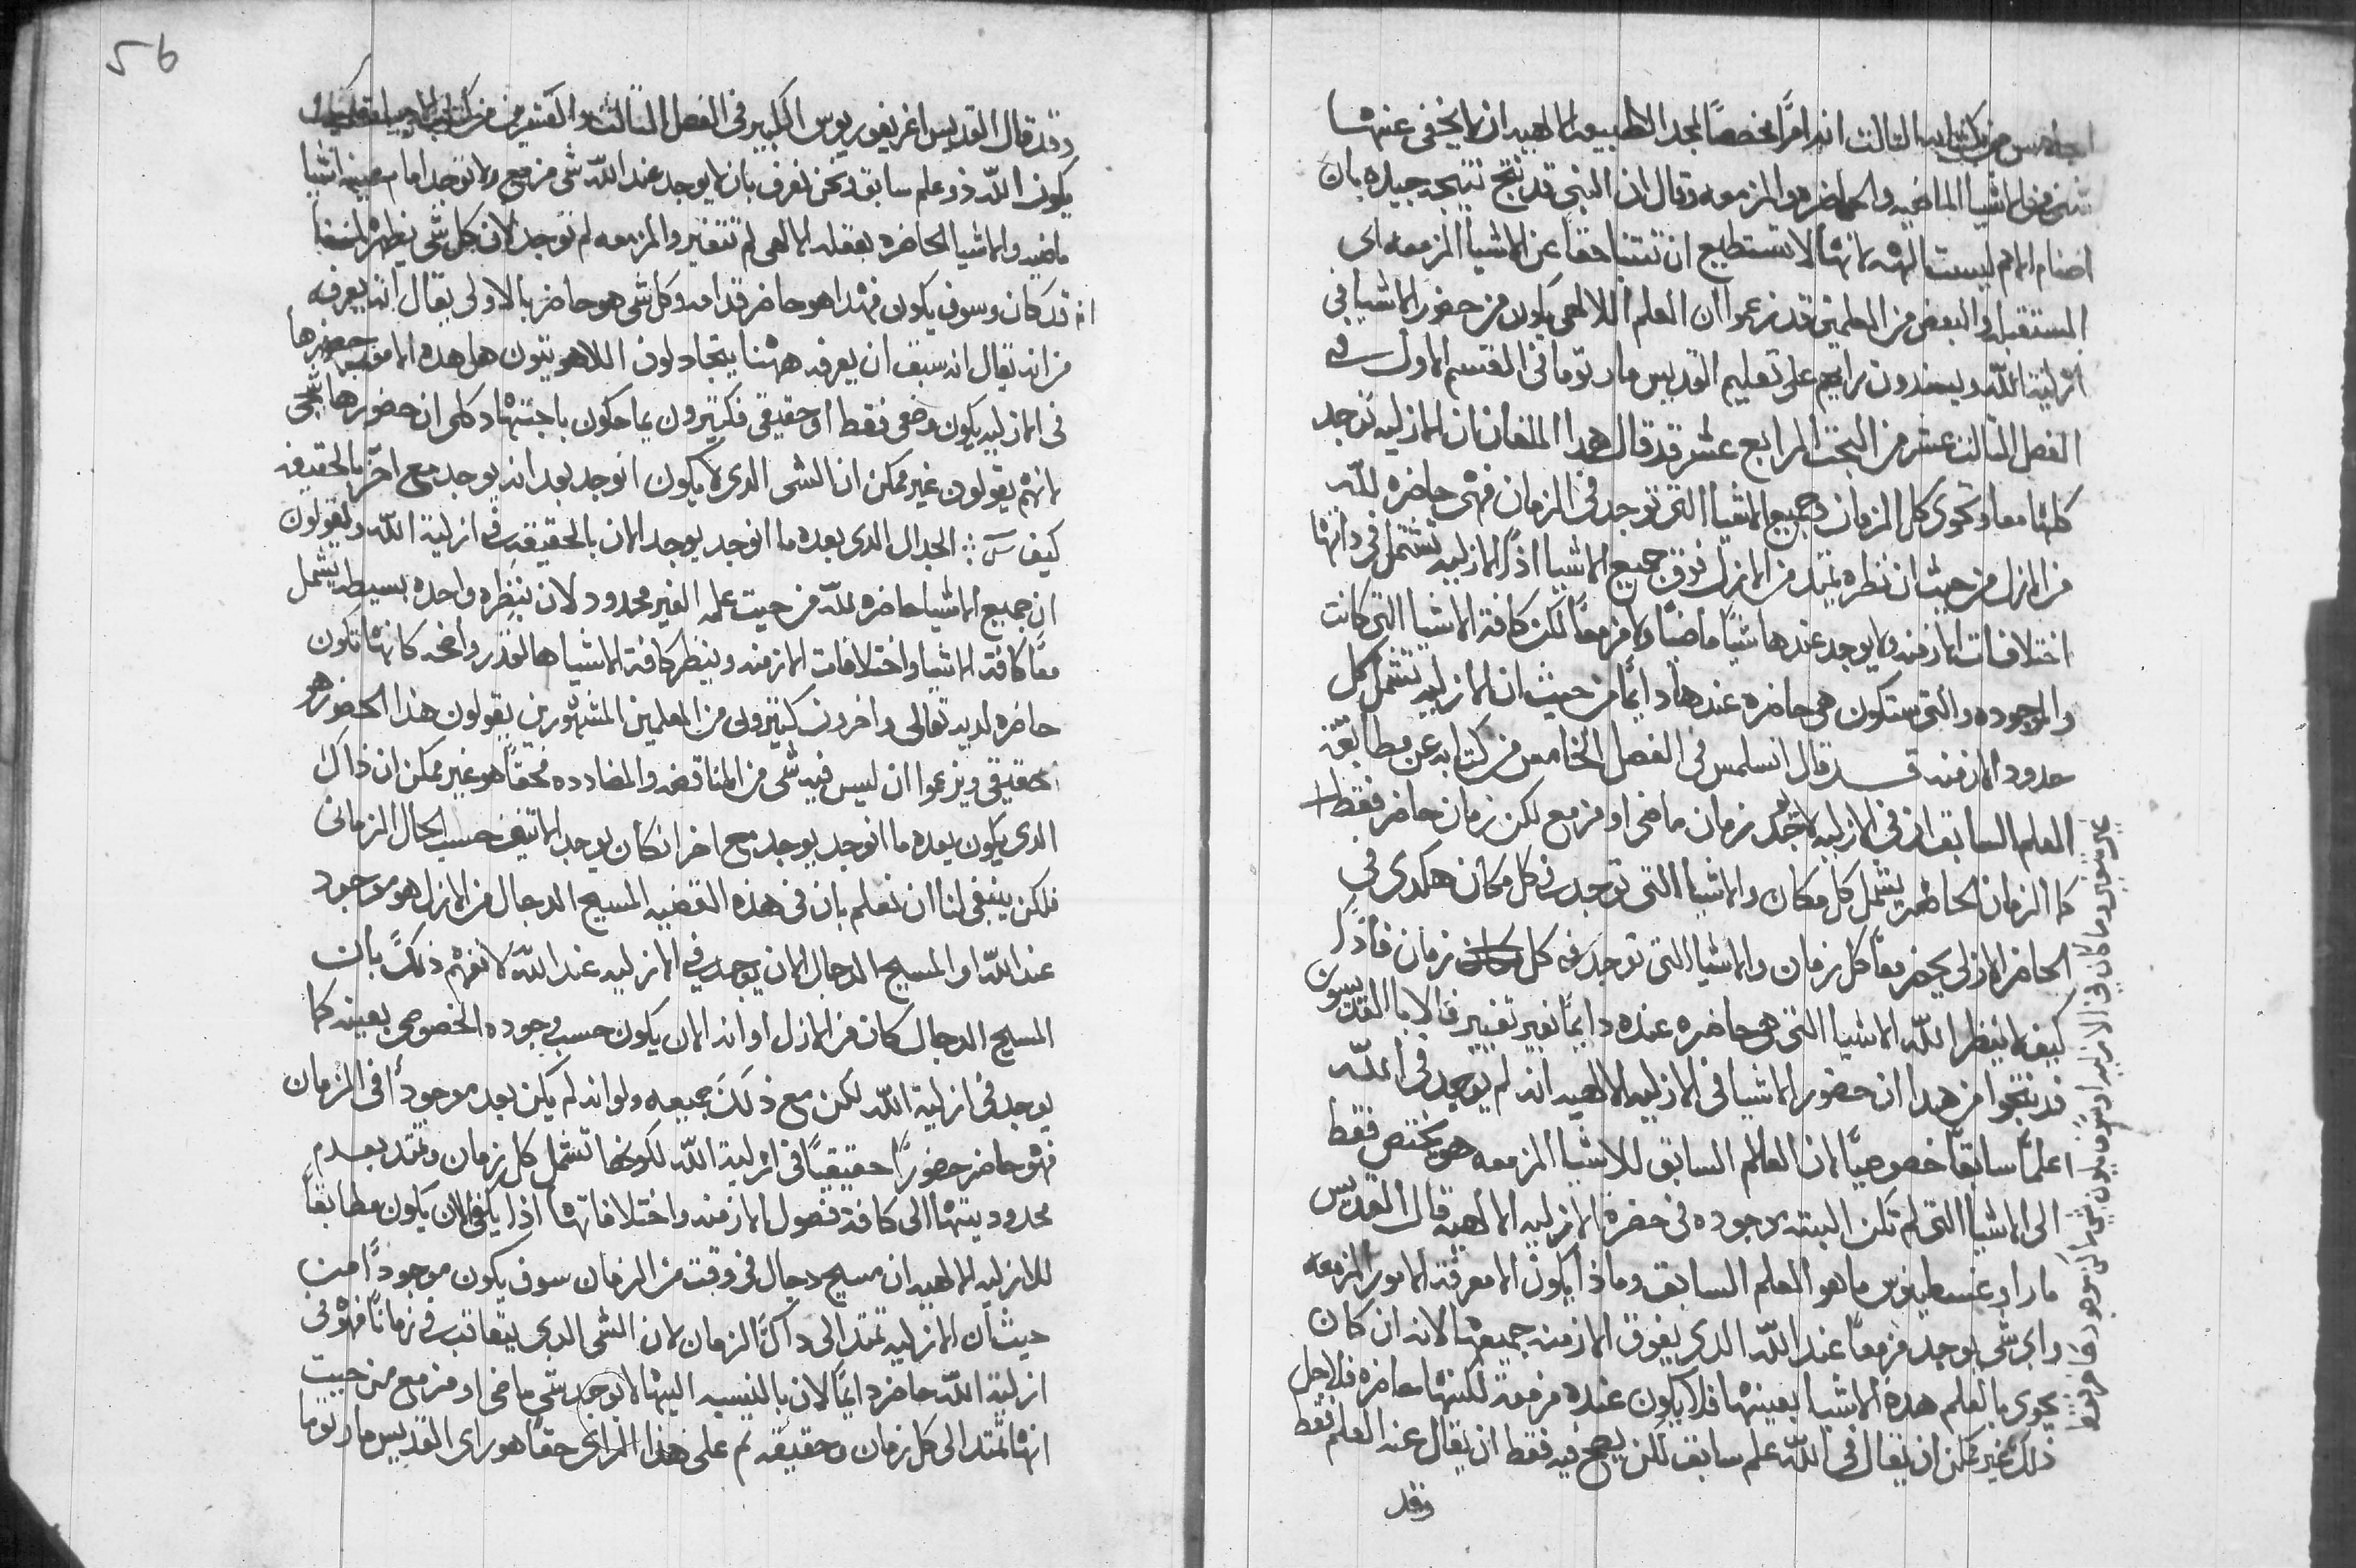 من كتابه الثالث انه امرًا مخصصًا لمجد الطبيعه الالهيه ان لا يخفى عنها
شي من الاشيا الماضيه والحاضره والمزمعه وقال ان النبي قد نتج نتيجه جيده بان
اصنام الامم ليست الهه لانها لا تستطيع ان تنبا حقًا عن الاشيا المزمعه اي
المستقبله والبعض من المعلمين قد زعموا ان العلم الالهي يكون من حضور الاشيا في
ازلية الله ويسندون رايهم على تعليم القديس مار توما في القسم الاول في
الفصل الثالث عشر من البحث الرابع عشر قد قال هذا الملفان ان الازليه توجد
كلها معا وتحوي كل الزمان وجميع الاشيا التي توجد في الزمان فهي حاضره لله
من الازل من حيث ان نظره يمتد من الازل فوق جميع الاشيا اذًا الازليه تشتمل في ذاتها
اختلافات الازمنه ولا يوجد عندها شيًا ماضيًا ولا مزمعًا لكن كافة الاشيا التي كانت
والموجوده والتي ستكون هي حاضره عندها دايمًا من حيث ان الازليه تشمل كل
حدود الازمنه قد قال انسلمس في الفصل الخامس من كتابه عن مطابقة
العلم السابق ان في الازليه لا يوجد زمان ماضي او مزمع لكن زمان حاضر فقط
كما الزمان الحاضر يشمل كل مكان والاشيا التي توجد في كل مكان هكذى في
الحاضر الازلي يحضر معًا كل زمان والاشيا التي توجد في كل زمان فاذًا
كيف لا ينظر الله الاشيا التي هي حاضره عنده دايمًا بغير تغيير فالابا القديسون
قد نتجوا من هذا ان حضور الاشيا في الازليه الالهيه انه لم يوجد في الله
علمًا سابقًا خصوصيًا لان العلم السابق للاشيا المزمعه هو يختص فقط
الى الاشيا التي لم تكن البته موجوده في حضرة الازليه الالهيه قال القديس
مار اوغسطينوس ما هو العلم السابق وماذا يكون الا معرفة الامور المزمعه
واي شي يوجد مزمعًا عند الله الذي يفوق الازمنه جميعها لانه ان كان
يحوي بالعلم هذه الاشيا بعينها فلا يكون عنده مزمعة لكنها حاضره فلاجل
ذلك غير ممكن ان يقال في الله علم سابق لكن يصح فيه فقط ان يقال عند العلم فقط
وقد
وقد قال القديس اغريغوريوس الكبير في الفصل الثالث والعشرين من كتاب
يكون الله ذو علم سابق ونحن نعرف بان لا يوجد عند الله شي مزمع ولا توجد امام عينيه اشيا
ماضيه والاشيا الحاضره بعقله الالهي لم تتغير والمزمعه لم توجد لان كل شي
انه قد كان وسوف يكون فهذا هو حاضر قدامه وكل شي هو حاضر بالاولى يقال انه يعرفه
من انه يقال انه سبق ان يعرفه ههنا يتجادلون اللاهوتيون هل هذه الامور حضورها
في الازليه يكون وضعي فقط او حقيقي فكثيرون يماحكون باجتهاد كلي ان حضورها
لانهم يقولون غير ممكن ان الشي الذي لا يكون انوجد بعد انه يوجد مع اخر بالحقيقه
كيف الجدال الذي بعده ما انوجد يوجد الان بالحقيقه في ازلية الله ويقولون
ان جميع الاشيا حاضره لله من حيث علمه الغير محدود لان بنظره واحده بسيطه يشمل
معًا كافة الاشيا واختلافات الازمنه وينظر كافة الاشيا واضحه كانها تكون
حاضره لديه تعالى واخرون كثيرون من المعلمين المشهورين يقولون هذا الحضور هو
حقيقي ويزعموا ان ليس فيه شي من المناقضه والمضادده فحقًا هو غير ممكن ان ذاك
الذي يكون بعده ما انوجد يوجد مع اخر حسب الحال الزماني
فلكن ينبغي لنا ان نعلم بان في هذه القضيه المسيح الدجال من الازل هو موجود
عند الله او المسيح الدجال الان يوجد في الازليه عند الله لا نفهم ذلك بان
المسيح الدجال كان من الازل او انه الان يكون حسب وجوده الخصوصي بعينه كما
يوجد في ازلية الله لكن مع ذلك جميعه ولو انه لم يكن بعد موجودًا في الزمان
فهو حاضر حضورًا حقيقيًا في ازلية الله لكونها تشمل كل زمان وتمتد بعدم
محدوديتها الى كافة فصول الازمنه واختلافاتها اذًا يكفي الان يكون مطابقًا
للازليه الالهيه ان مسيح دجال في وقت من الزمان سوف يكون موجودًا من
حيث ان الازليه تمتد الى ذاك الزمان لان الشي الذي يتعاقب في زمانًا فهو في
ازلية الله حاضر دايمًا لان بالنسبه اليها لا يوجد شي ماضي او مزمع من حيث
انها تمتد الى كل زمان وحقيقه ثم على هذا الراي حقًا هو راى القديس مار توما
56